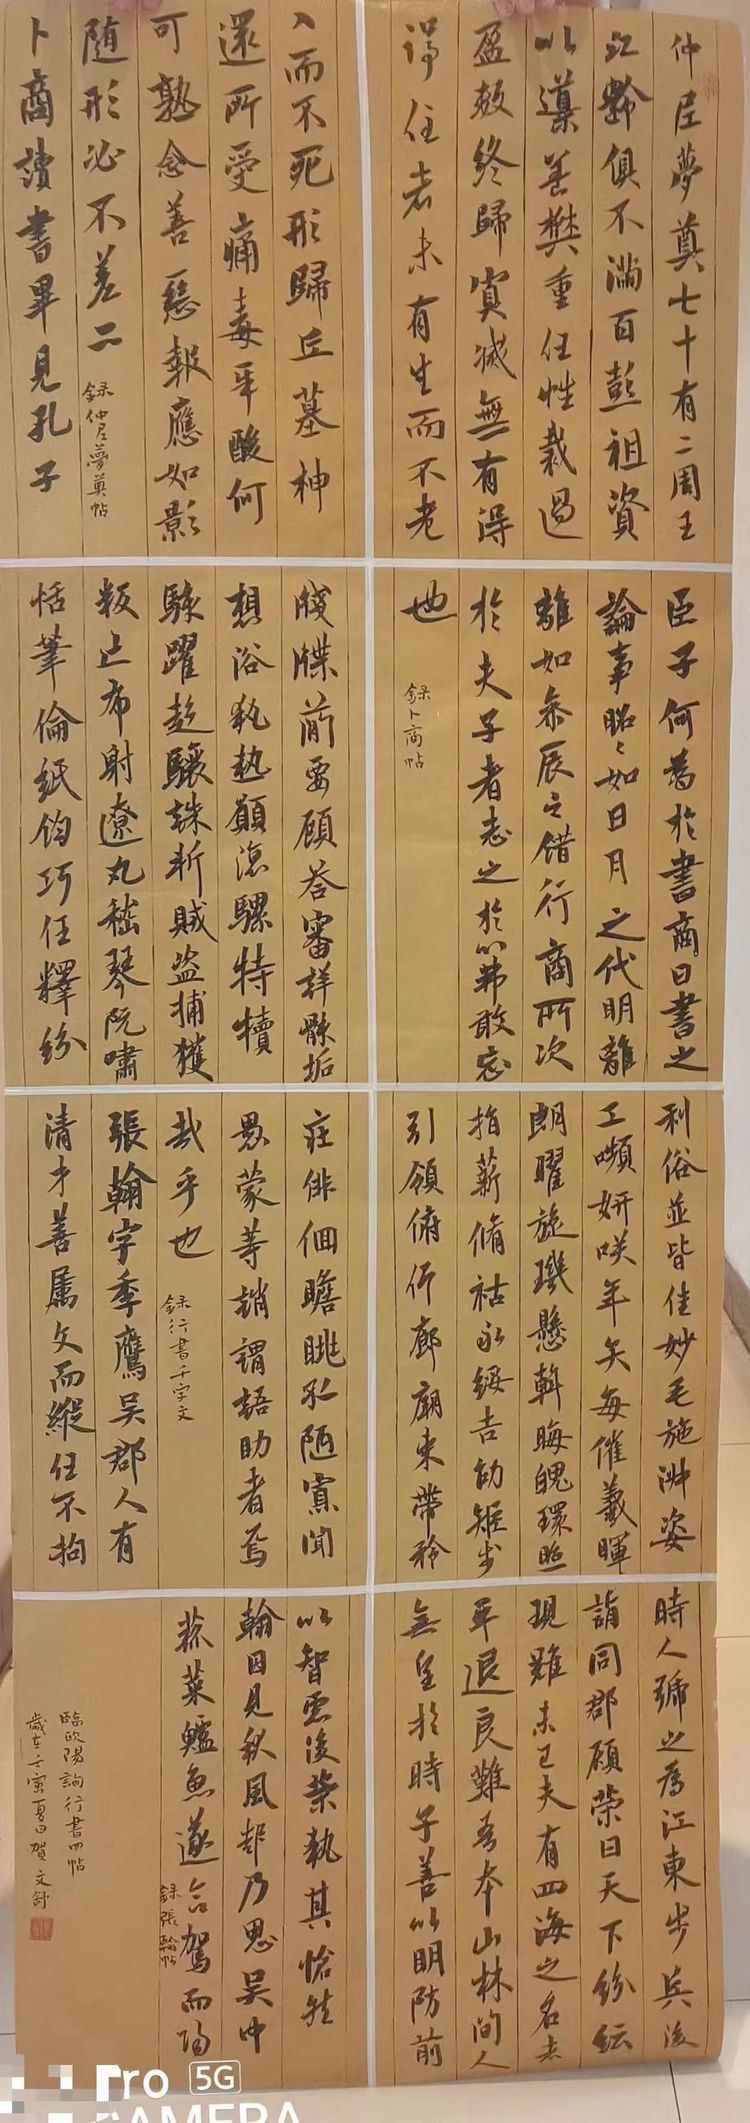 仲尼夢奠七十有二周王
九齡俱不滿百彭祖資
以導養樊重任性裁過
盈數終歸冥滅無有得
停住者未有生而不老
入而不死形歸丘墓神
還所受痛毒辛酸何
可熟念善惡報應如影
隨形必不差二
錄仲尼夢奠帖
卜商讀書畢見孔子
臣子何為於書商曰書之
論事昭昭如日月之代明離
離如參辰之錯行商所次
於夫子者志之於心弗敢忘
也
錄卜商帖
牋牒簡要顧答審詳骸垢
想浴執熱願涼騾特犢
駭躍超驤誅斬賊盜捕獲
叛亡布射遼丸嵇琴阮嘯
恬筆倫紙鈞巧任釋紛
利俗並皆佳妙毛施淑姿
工嚬妍咲年矢每催羲暉
朗曜旋璣懸斡晦魄環照
指薪脩祜永綏吉劭矩步
引領俯仰廊廟束帶矜
莊俳佪瞻眺孤陋寡聞
愚蒙等誚謂語助者焉
哉乎也
錄行書千字文
張翰字季鷹吳郡人有
清才善屬文而縱任不拘
時人號之為江東步兵後
謂同郡顧榮曰天下紛紜
難未已夫有四海之名者
求退良難吾本山林間人
無望於時子善以明防前
以智慮後榮執其愴然
翰因見秋風起乃思吳中
菰菜鱸魚遂命駕而歸
錄張翰帖
臨歐陽詢行書四帖
歲在壬寅夏日賀文舒
ro 5G
AMERA